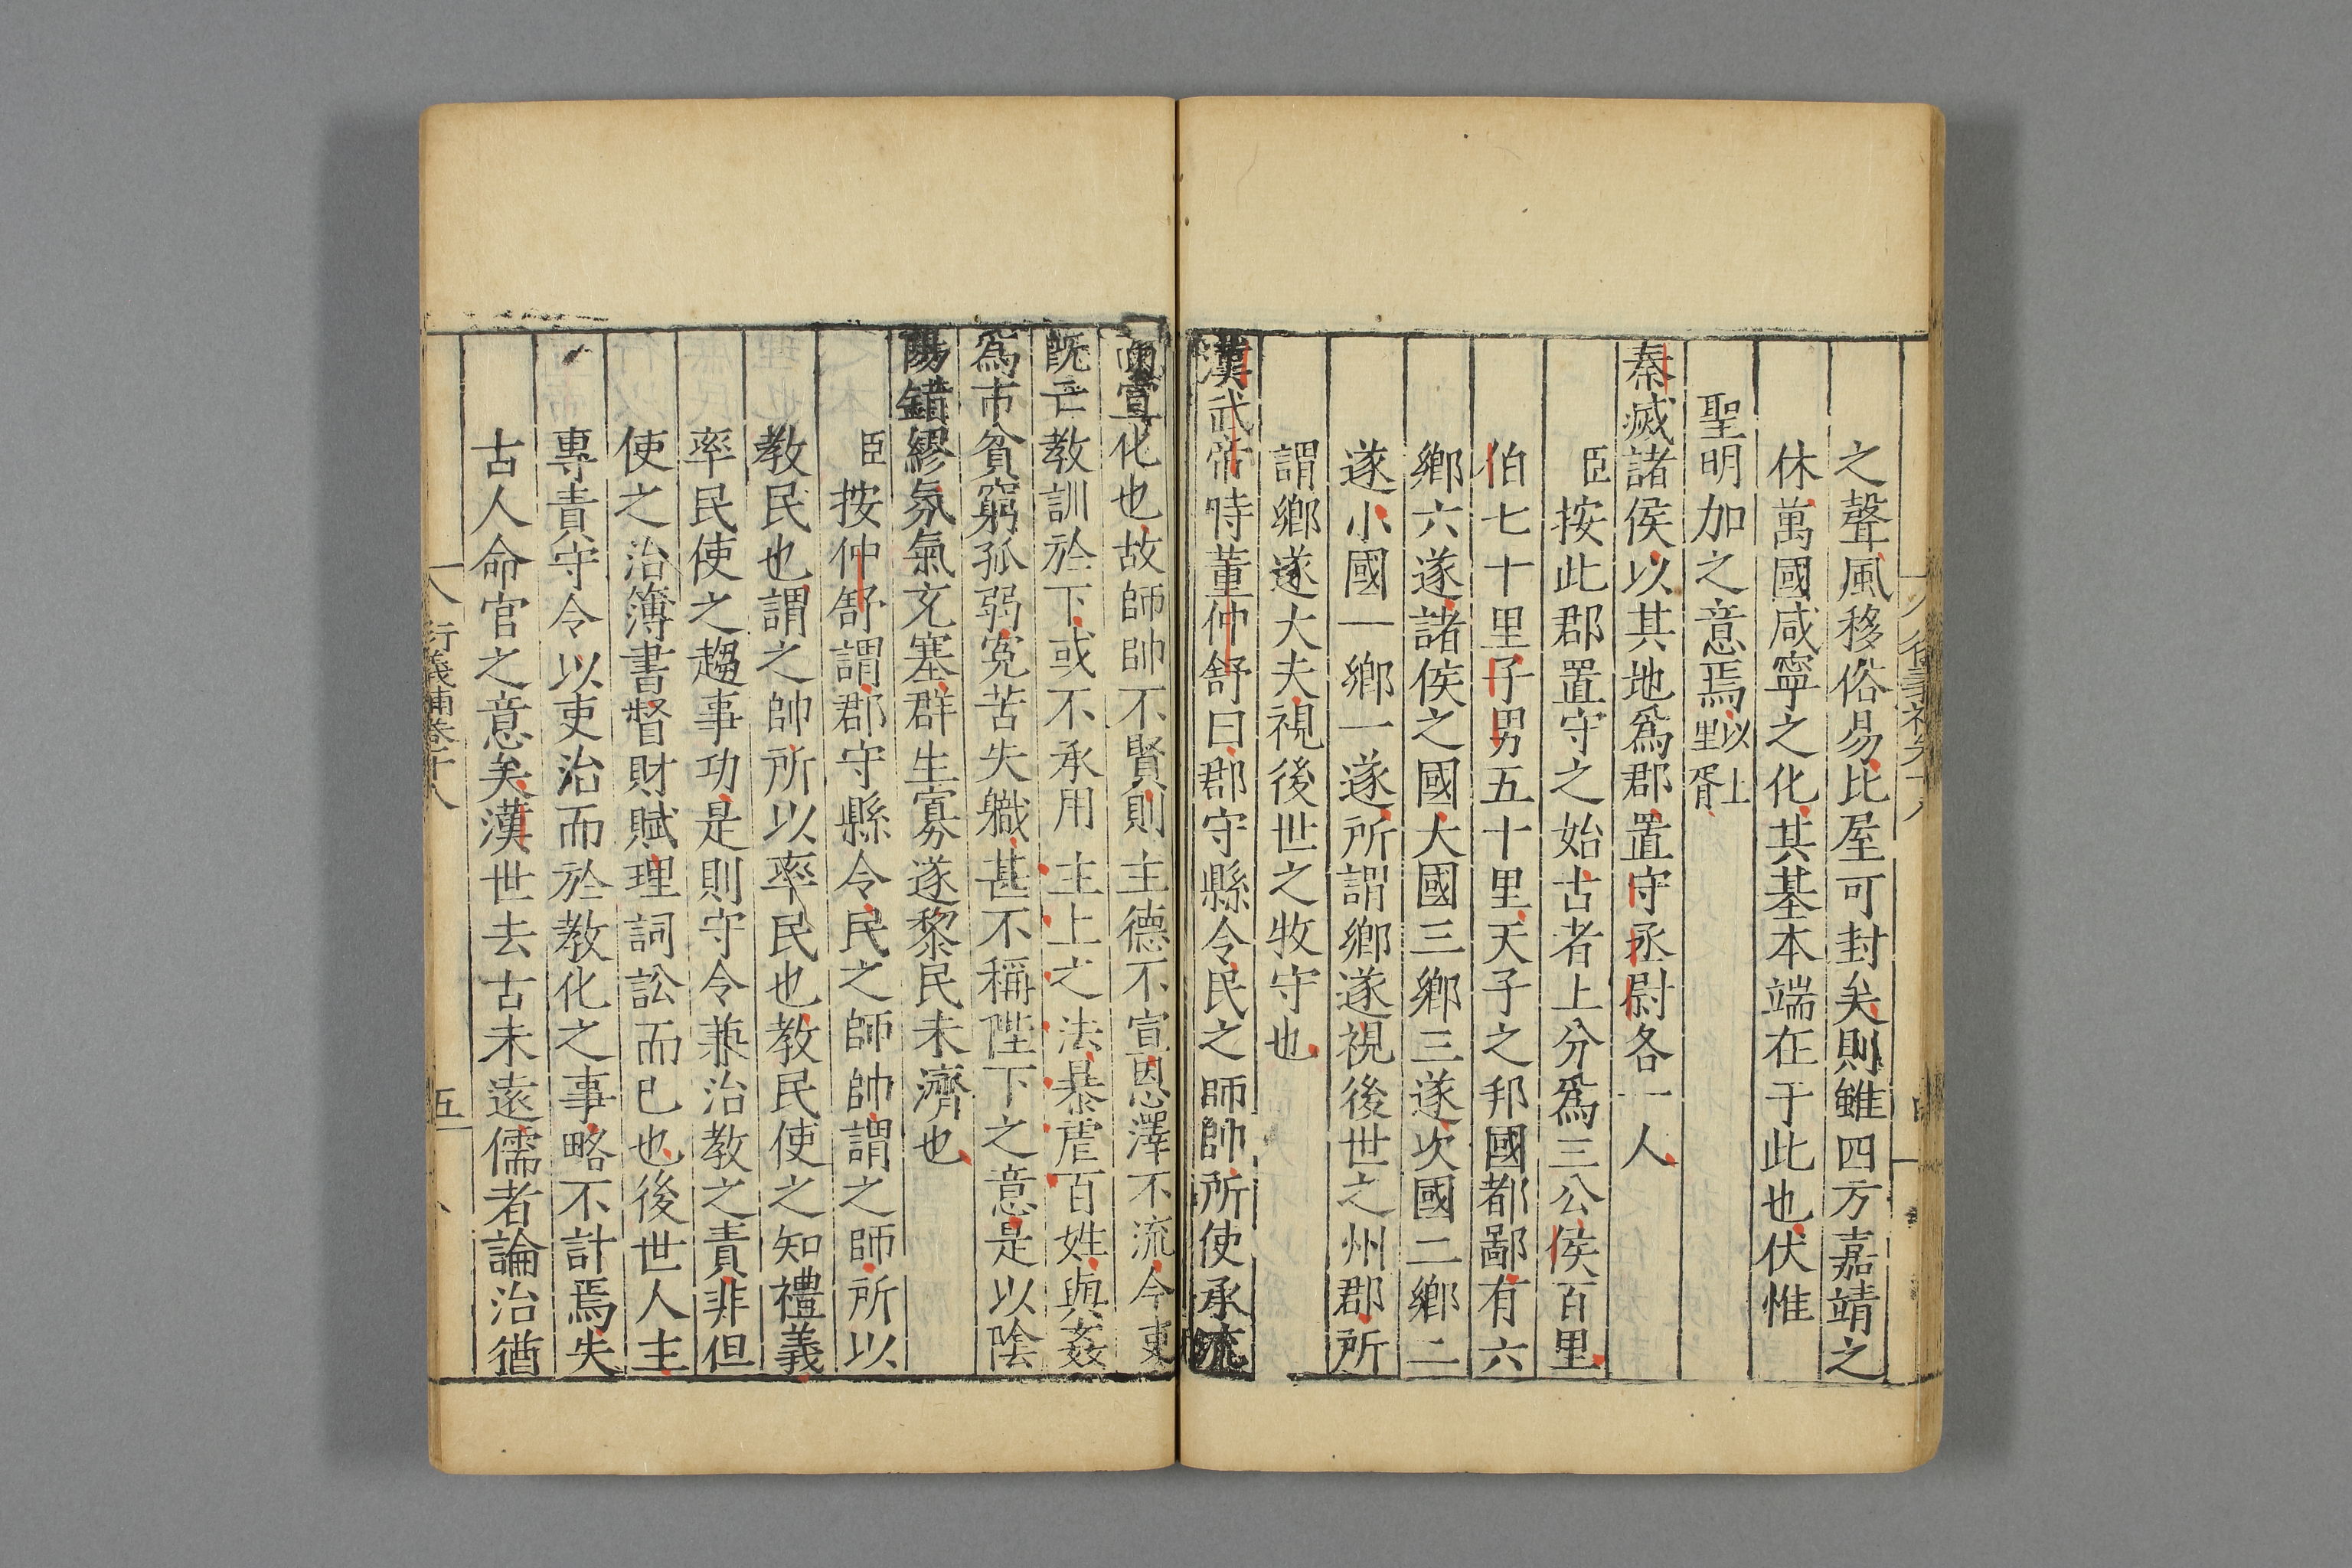 之聲風移俗易比屋可封矣則雖四方嘉靖之
休萬國咸寧之化其基本端在于此也伏惟
聖明加之意焉以上里胥
秦滅諸侯以其地爲郡置守丞尉各一人
臣按此郡置守之始古者上分爲三公侯百里
伯七十里子男五十里天子之邦國都鄙有六
鄉六遂諸侯之國大國三鄉三遂次國二鄉二
遂小國一鄉一遂所謂鄉遂視後世之州郡所
謂鄉遂大夫視後世之牧守也
漢武帝時董仲舒曰郡守縣令民之師帥所使承流
而宣化也故師帥不賢則主德不宣恩澤不流今吏
旣亡教訓於下或不承用主上之法暴虐百姓與姦
爲市貧窮孤弱寃苦失職甚不稱陛下之意是以陰
陽錯繆氛氣充塞群生寡遂黎民未濟也
臣按仲舒謂郡守縣令民之師帥謂之師所以
教民也謂之帥所以率民也教民使之知禮義
率民使之趨事功是則守令兼治教之責非但
使之治簿書督財賦理詞訟而已也後世人主
專責守令以吏治而於教化之事略不計焉失
古人命官之意矣漢世去古未遠儒者論治猶
衍義補卷十八
五